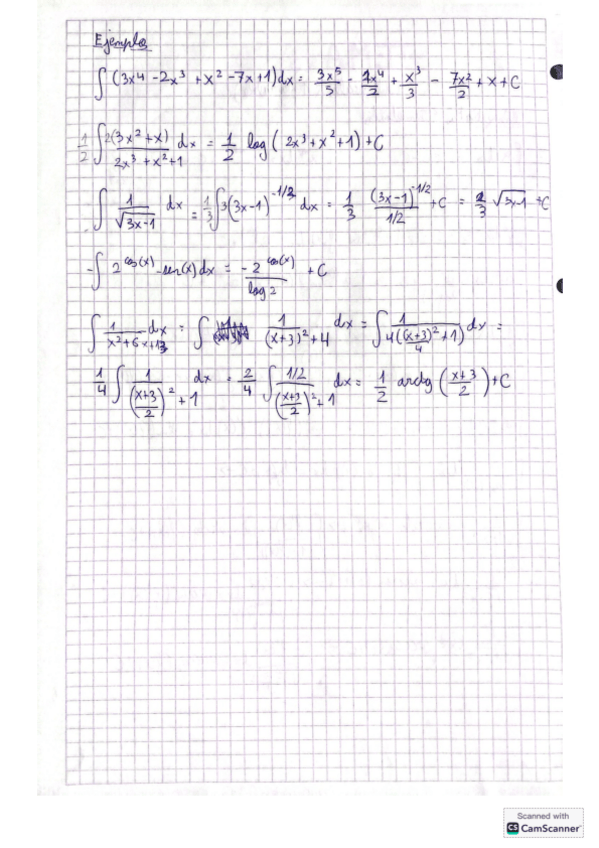 Ejemplo
∫ (3x⁴ - 2x³ + x² - 7x + 1) dx = 3x⁵/5 - 1x⁴/2 + x³/3 - 7x²/2 + x + C
1/2 ∫ 2(3x² + x)/(2x³ + x² + 1) dx = 1/2 log(2x³ + x² + 1) + C
∫ 1/√(3x-1) dx = 1/3 ∫ 3(3x-1)^(-1/2) dx = 1/3 (3x-1)^(1/2)/(1/2) + C = 2/3 √(3x-1) + C
-∫ 2^(cos(x)) · -sen(x) dx = -2^(cos(x))/log 2 + C
∫ 1/(x² + 6x + 13) dx = ∫ 1/((x+3)² + 4) dx = ∫ 1/(4((x+3)²/4 + 1)) dx =
1/4 ∫ 1/(((x+3)/2)² + 1) dx = 2/4 ∫ (1/2)/(((x+3)/2)² + 1) dx = 1/2 arctg((x+3)/2) + C
Scanned with
CS CamScanner